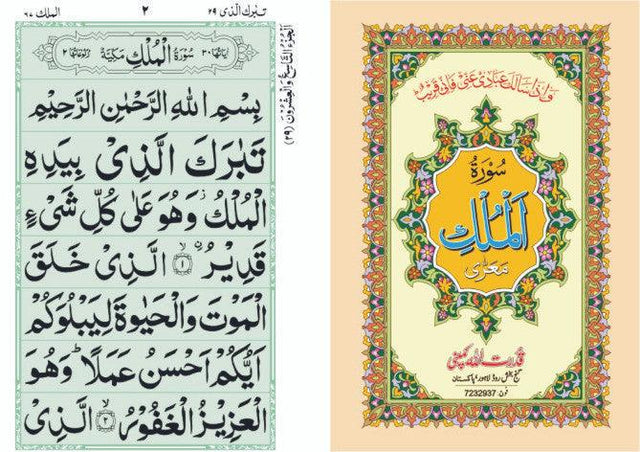 تبٰرك الذی ٢٩
٢
الملك ٦٧
اٰيَاتُهَا ٣٠ سُوْرَةُ الْمُلْكِ مَكِّيَّةٌ رُكُوْعَاتُهَا ٢
الجزء التاسع والعشرون (٢٩)
بِسْمِ اللهِ الرَّحْمٰنِ الرَّحِيْمِ
تَبٰرَكَ الَّذِیْ بِيَدِهِ
الْمُلْكُ ز وَهُوَ عَلٰی كُلِّ شَیْءٍ
قَدِيْرُ ۙ ١ الَّذِیْ خَلَقَ
الْمَوْتَ وَالْحَيٰوةَ لِيَبْلُوَكُمْ
اَيُّكُمْ اَحْسَنُ عَمَلًا ؕ وَهُوَ
الْعَزِيْزُ الْغَفُوْرُ ۙ ٢ الَّذِیْ
وَاِذَا سَاَلَكَ عِبَادِیْ عَنِّیْ فَاِنِّیْ قَرِيْبٌ
سُوْرَةُ
اَلْمُلْكِ
مَعَرّٰی
قدرت اللہ کمپنی
گنج بخش روڈ لاہور ۲ پاکستان
فون: 7232937